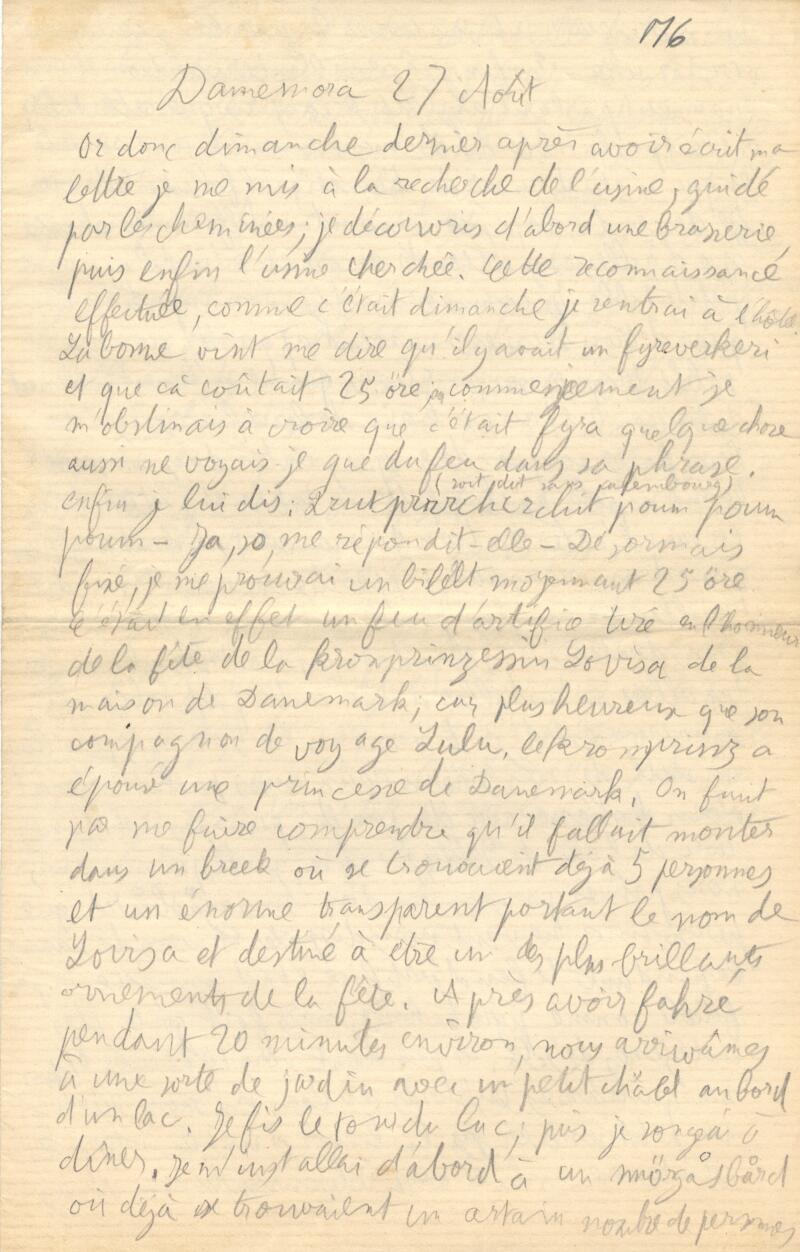 176
Damemora 27 Août
Or donc dimanche dernier après avoir écrit ma
lettre je me mis à la recherche de l'usine, guidé
par les cheminées; je découvris d'abord une brasserie,
puis enfin l'usine cherchée. Cette reconnaissance
effectuée, comme c'était dimanche je rentrai à l'hôtel.
La bonne vint me dire qu'il y avait un fyreverkeri
et que cà coûtait 25 öre, commencement je
m'obstinais à croire que c'était fyra quelque chose
aussi ne voyais-je que du feu dans sa phrase.
(soit dit sans calembourg)
enfin je lui dis: poum poum
poum – Ja, so, me répondit-elle – Désormais
fixé, je me procurai un billet moyennant 25 öre
C'était en effet un feu d'artifice tiré en l'honneur
de la fête de la kronprinzessin Lovisa de la
maison de Danemark; car plus heureux que son
compagnon de voyage Lulu, le kronprinz a
épousé une princesse de Danemark. On finit
par me faire comprendre qu'il fallait monter
dans un break où se trouvaient déjà 5 personnes
et un énorme transparent portant le nom de
Lovisa et destiné à etre un des plus brillants
ornements de la fête. Après avoir fahré
pendant 20 minutes environ, nous arrivâmes
à une sorte de jardin avec un petit châlet au bord
d'un lac. Je fis le tour du lac; puis je songai à
diner. Je m'installai d'abord à un smörgåsbård
où déjà se trouvaient un certain nombre de personnes